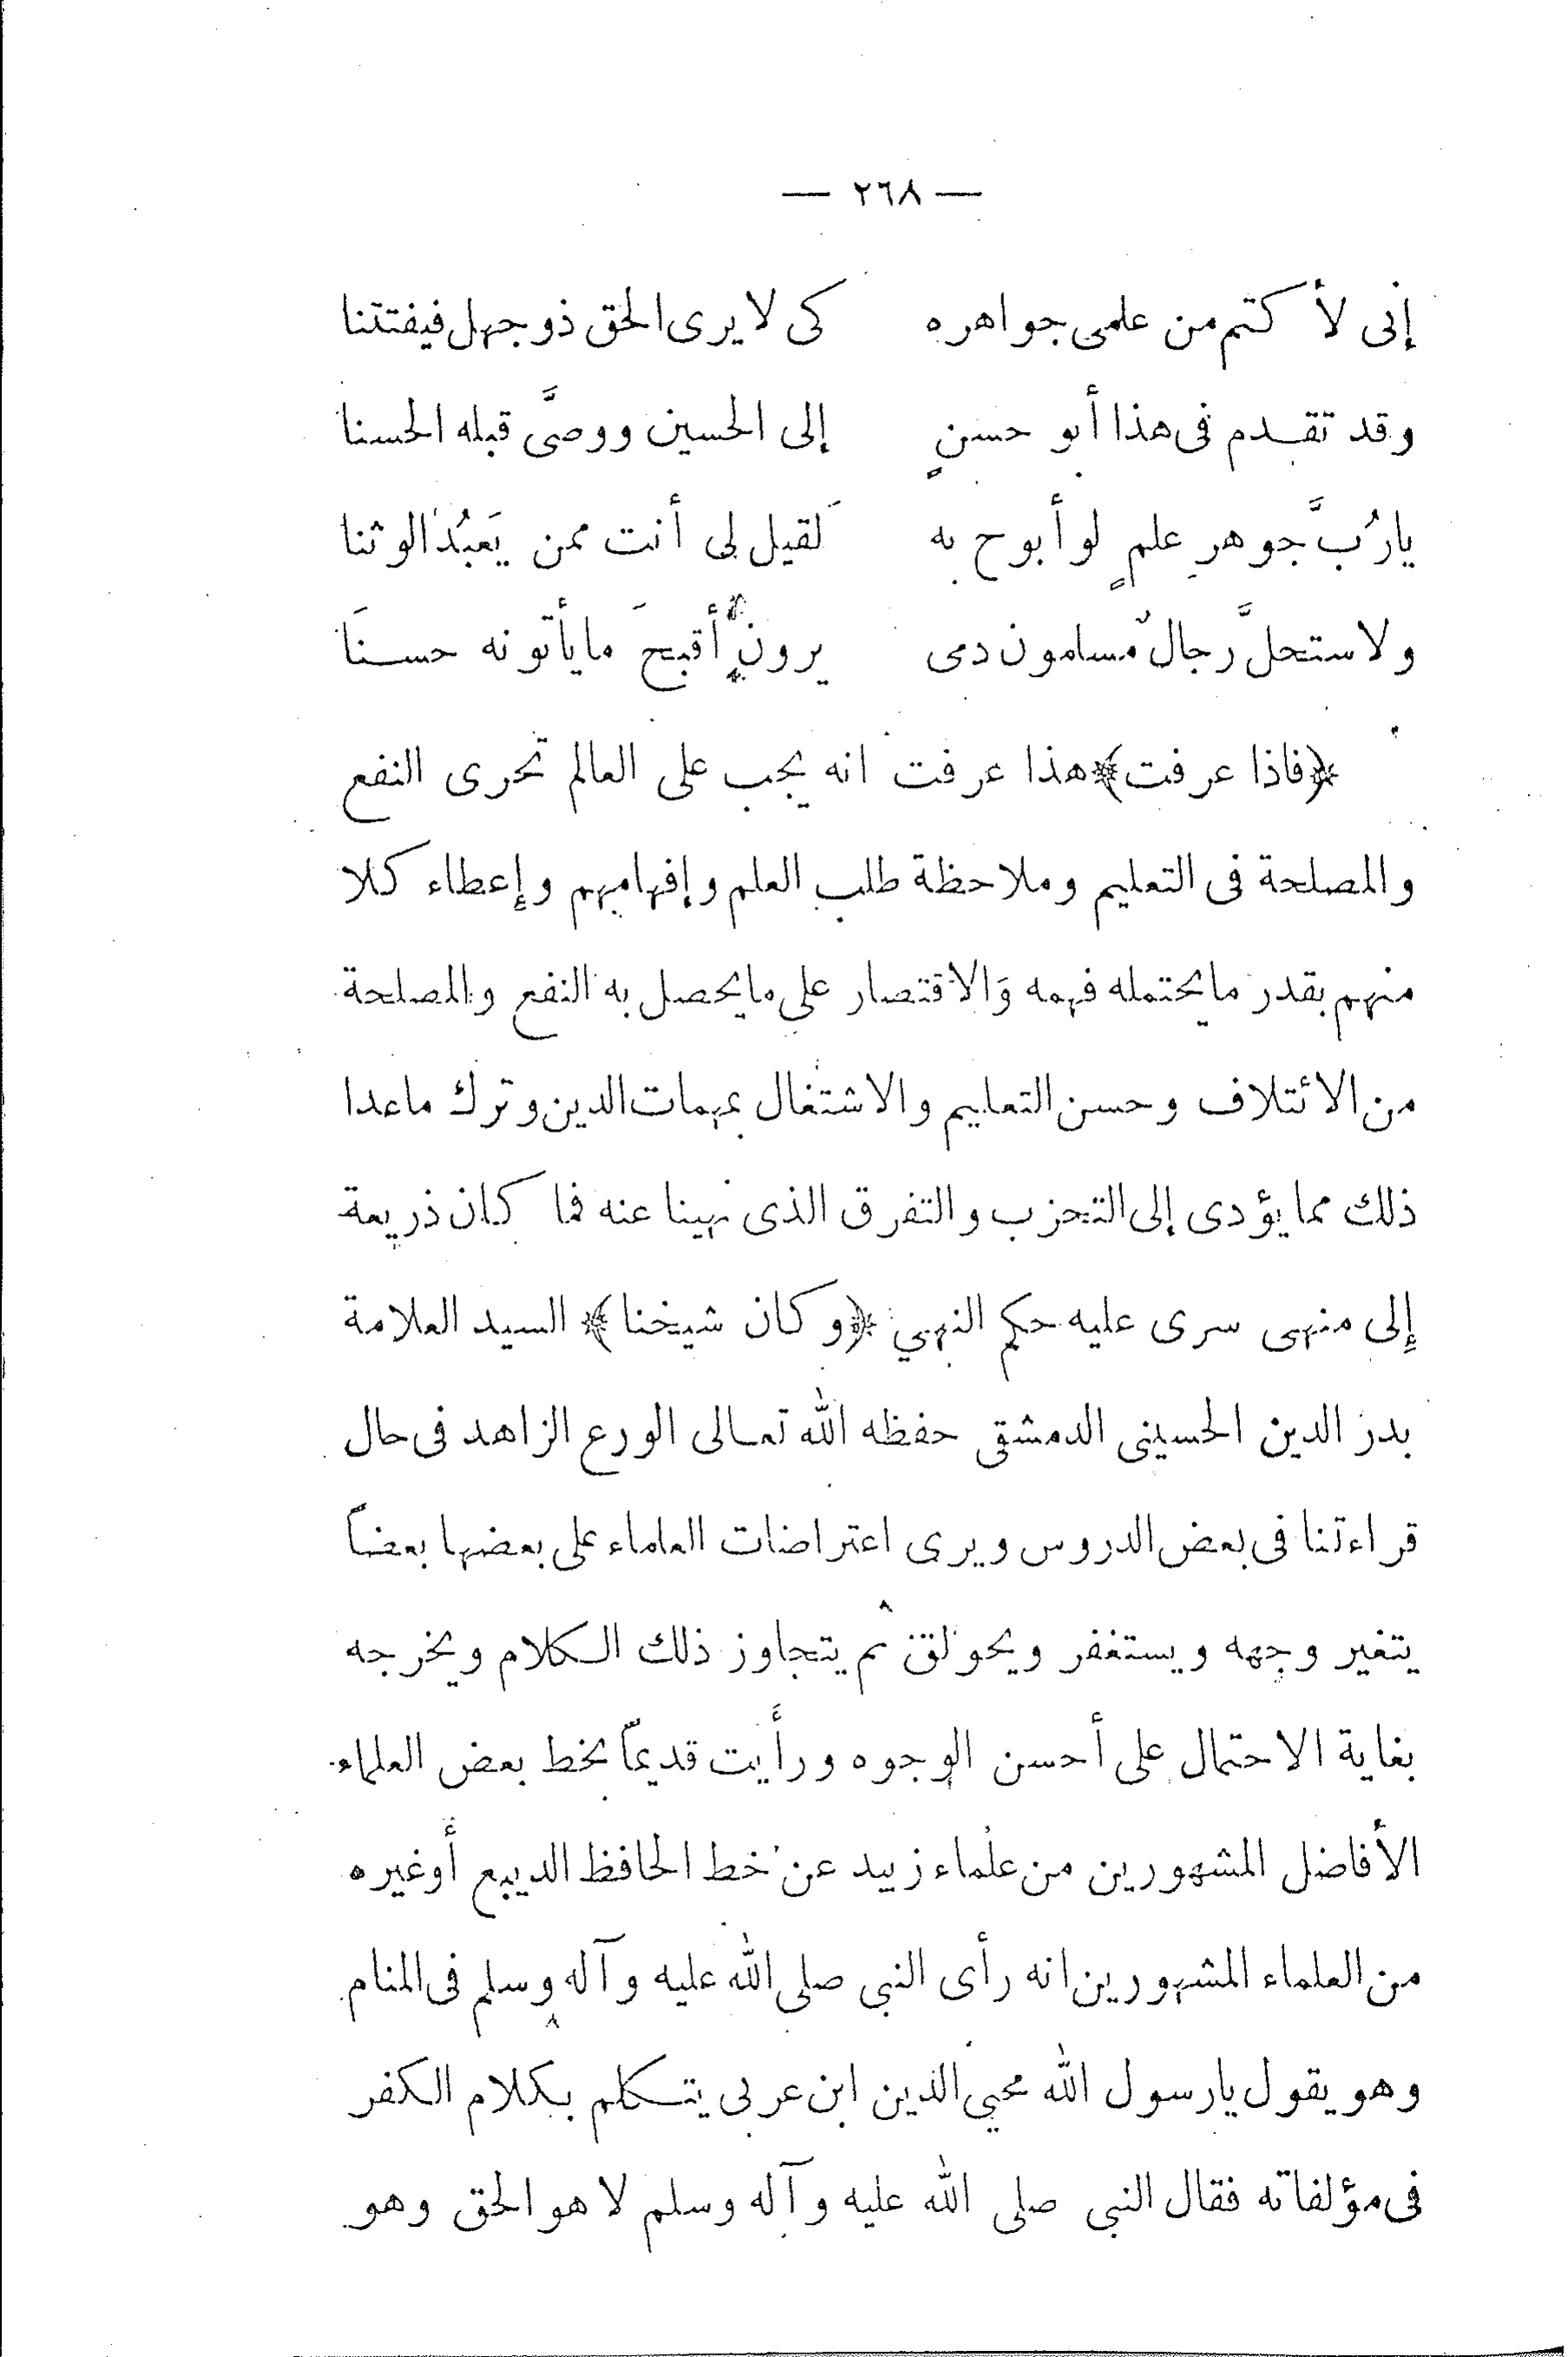 — ٢٦٨ —
إنى لأكتم من علمى جواهره كى لا يرى الحق ذو جهل فيفتتنا
وقد تقدم فى هذا أبو حسنٍ إلى الحسين ووصَّى قبله الحسنا
يا رُبَّ جوهرِ علمٍ لو أبوح به لَقيل لى أنت ممن يَعبُد الوثنا
ولاستحلَّ رجالٌ مسلمون دمى يرون أقبحَ ما يأتونه حسنَا
﴿فاذا عرفت﴾ هذا عرفت انه يجب على العالم تحرى النفع
والمصلحة فى التعليم وملاحظة طلب العلم وإفهامهم وإعطاء كلا
منهم بقدر ما يحتمله فهمه وَالاقتصار على ما يحصل به النفع والمصلحة
من الائتلاف وحسن التعليم والاشتغال بمهمات الدين وترك ما عدا
ذلك مما يؤدى إلى التحزب والتفرق الذى نهينا عنه فما كان ذريعة
إلى منهى سرى عليه حكم النهي ﴿وكان شيخنا﴾ السيد العلامة
بدر الدين الحسينى الدمشقى حفظه الله تعالى الورع الزاهد فى حال
قراءتنا فى بعض الدروس ويرى اعتراضات العلماء على بعضها بعضاً
يتغير وجهه ويستغفر ويحولق ثم يتجاوز ذلك الكلام ويخرجه
بغاية الاحتمال على أحسن الوجوه ورأيت قديماً بخط بعض العلماء
الأفاضل المشهورين من علماء زبيد عن خط الحافظ الديبع أو غيره
من العلماء المشهورين انه رأى النبى صلى الله عليه وآله وسلم فى المنام
وهو يقول يا رسول الله محيي الدين ابن عربى يتكلم بكلام الكفر
فى مؤلفاته فقال النبى صلى الله عليه وآله وسلم لا هو الحق وهو